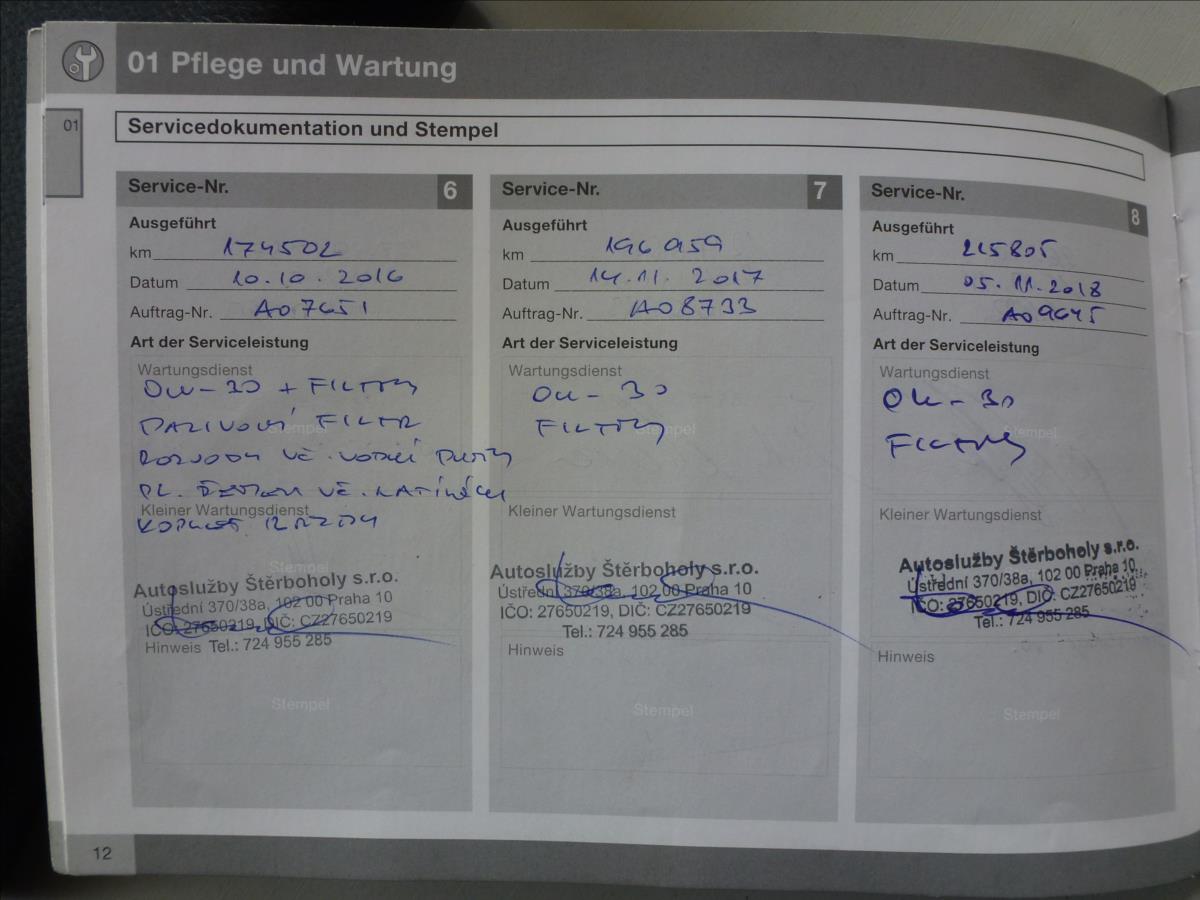 01 Pflege und Wartung
01
Servicedokumentation und Stempel
Service-Nr. 6
Ausgeführt
km 174502
Datum 10.10.2016
Auftrag-Nr. A07651
Art der Serviceleistung
Wartungsdienst
OW-30 + FILTRY
PALIVOVÝ FILTR
Stempel
ROZVODY VČ. VODNÍ PUMPY
Kleiner Wartungsdienst
Stempel
Autoslužby Štěrboholy s.r.o.
Ústřední 370/38a, 102 00 Praha 10
IČO: 27650219, DIČ: CZ27650219
Hinweis Tel.: 724 955 285
Stempel
Service-Nr. 7
Ausgeführt
km 196959
Datum 14.11.2017
Auftrag-Nr. A08733
Art der Serviceleistung
Wartungsdienst
OW-30
FILTRY
Stempel
Kleiner Wartungsdienst
Autoslužby Štěrboholy s.r.o.
Ústřední 370/38a, 102 00 Praha 10
IČO: 27650219, DIČ: CZ27650219
Tel.: 724 955 285
Hinweis
Stempel
Service-Nr. 8
Ausgeführt
km 215805
Datum 05.11.2018
Auftrag-Nr. A09645
Art der Serviceleistung
Wartungsdienst
OW-30
Stempel
FILTRY
Kleiner Wartungsdienst
Autoslužby Štěrboholy s.r.o.
Ústřední 370/38a, 102 00 Praha 10
IČO: 27650219, DIČ: CZ27650219
Tel.: 724 955 285
Hinweis
Stempel
12